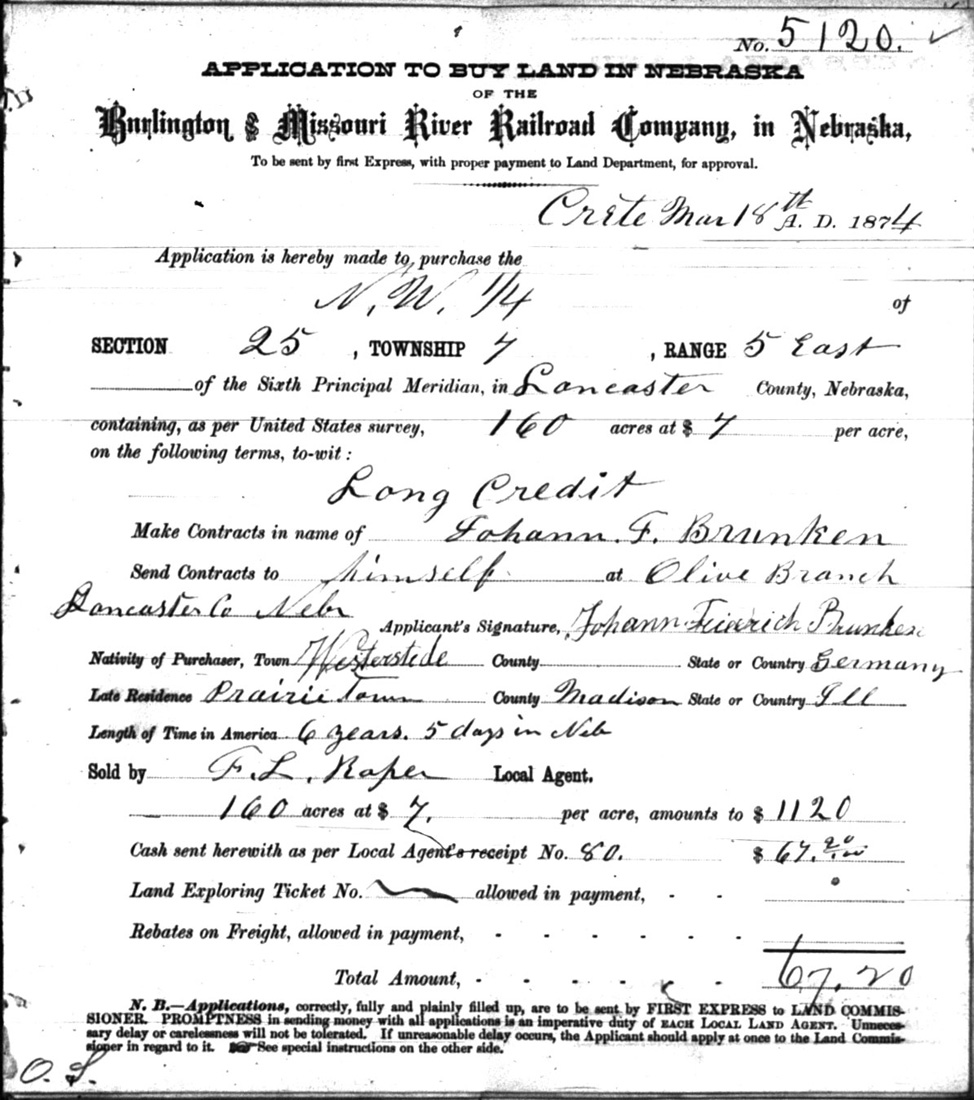 No. 5120. ✓
APPLICATION TO BUY LAND IN NEBRASKA
OF THE
Burlington & Missouri River Railroad Company, in Nebraska,
To be sent by first Express, with proper payment to Land Department, for approval.
Crete Mar 18th A. D. 1874
Application is hereby made to purchase the
N. W. 1/4 of
SECTION 25, TOWNSHIP 7, RANGE 5 East
of the Sixth Principal Meridian, in Lancaster County, Nebraska,
containing, as per United States survey, 160 acres at $ 7 per acre,
on the following terms, to-wit:
Long Credit
Make Contracts in name of Johann. F. Brunken
Send Contracts to himself at Olive Branch
Lancaster Co Nebr
Applicant's Signature, Johann Feiedrich Brunken
Nativity of Purchaser, Town Westerstede County State or Country Germany
Late Residence Prairie Town County Madison State or Country Ill
Length of Time in America 6 years. 5 days in Neb
Sold by F. L. Roper Local Agent.
160 acres at $ 7. per acre, amounts to $ 1120
Cash sent herewith as per Local Agent's receipt No. 80. $ 67.20
Land Exploring Ticket No. allowed in payment, - -
Rebates on Freight, allowed in payment, - - - - - -
Total Amount, - - - - - - 67.20
N. B.—Applications, correctly, fully and plainly filled up, are to be sent by FIRST EXPRESS to LAND COMMIS-
SIONER. PROMPTNESS in sending money with all applications is an imperative duty of EACH LOCAL LAND AGENT. Unneces-
sary delay or carelessness will not be tolerated. If unreasonable delay occurs, the Applicant should apply at once to the Land Commis-
sioner in regard to it. ☞ See special instructions on the other side.
O. S.